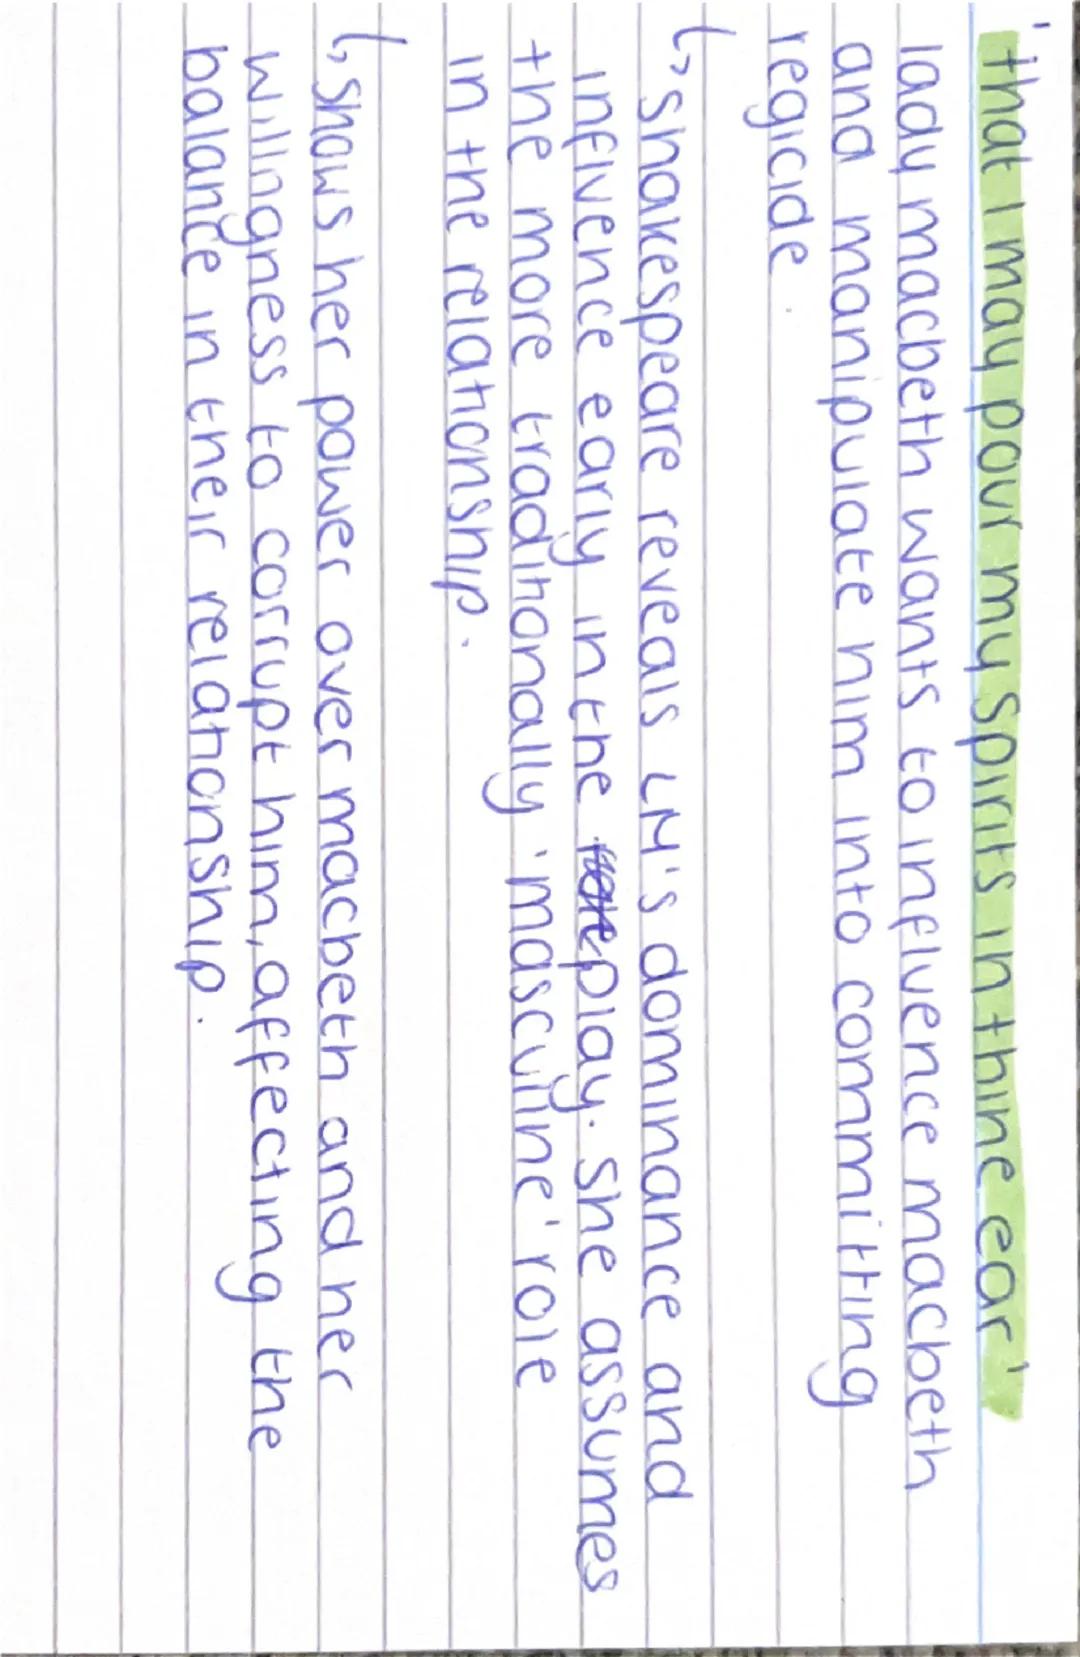 'that I may pour my spirits in thine ear'
lady macbeth wants to influence macbeth
and manipulate him into committing
regicide.
↳ shakespeare reveals LM's dominance and
influence early in the play. She assumes
the more traditionally 'masculine' role
in the relationship.
↳ Shows her power over macbeth and her
willingness to corrupt him, affecting the
balance in their relationship.